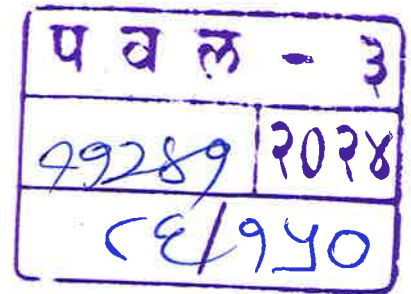 प व ल - ३
११२४१ २०२४
८६/१५०